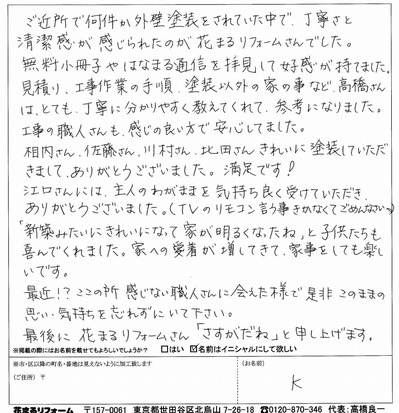 ご近所で何件か外壁塗装をされていた中で、丁寧さと
清潔感が感じられたのが花まるリフォームさんでした。
無料小冊子やはなまる通信を拝見して好感が持てました。
見積り、工事作業の手順、塗装以外の家の事など、高橋さん
は、とても、丁寧に分かりやすく教えてくれて、参考になりました。
工事の職人さんも、感じの良い方で安心してました。
相内さん、佐藤さん、川村さん、北田さん きれいに塗装していただ
きまして、ありがとうございました。満足です!
江口さんには、主人のわがままを気持ち良く受けていただき、
ありがとうございました。(TVのリモコン言う事きかなくてごめんなさい)
「新築みたいにきれいになって家が明るくなったね」と子供たちも
喜んでくれました。家への愛着が増してきて、家事をしても楽し
いです。
最近!?ここの所 感じない職人さんに会えた様で是非このままの
思い・気持ちを忘れずにいて下さい。
最後に 花まるリフォームさん「さすがだね」と申し上げます。
※掲載の際にはお名前を載せてもよろしいでしょうか? □はい ☑名前はイニシャルにして欲しい
※市・区以降の町名・番地は見えないように加工致します
(ご住所) 〒
(お名前)
K
花まるリフォーム 〒157-0061 東京都世田谷区北烏山7-26-18 ☎0120-870-346 代表:高橋良一